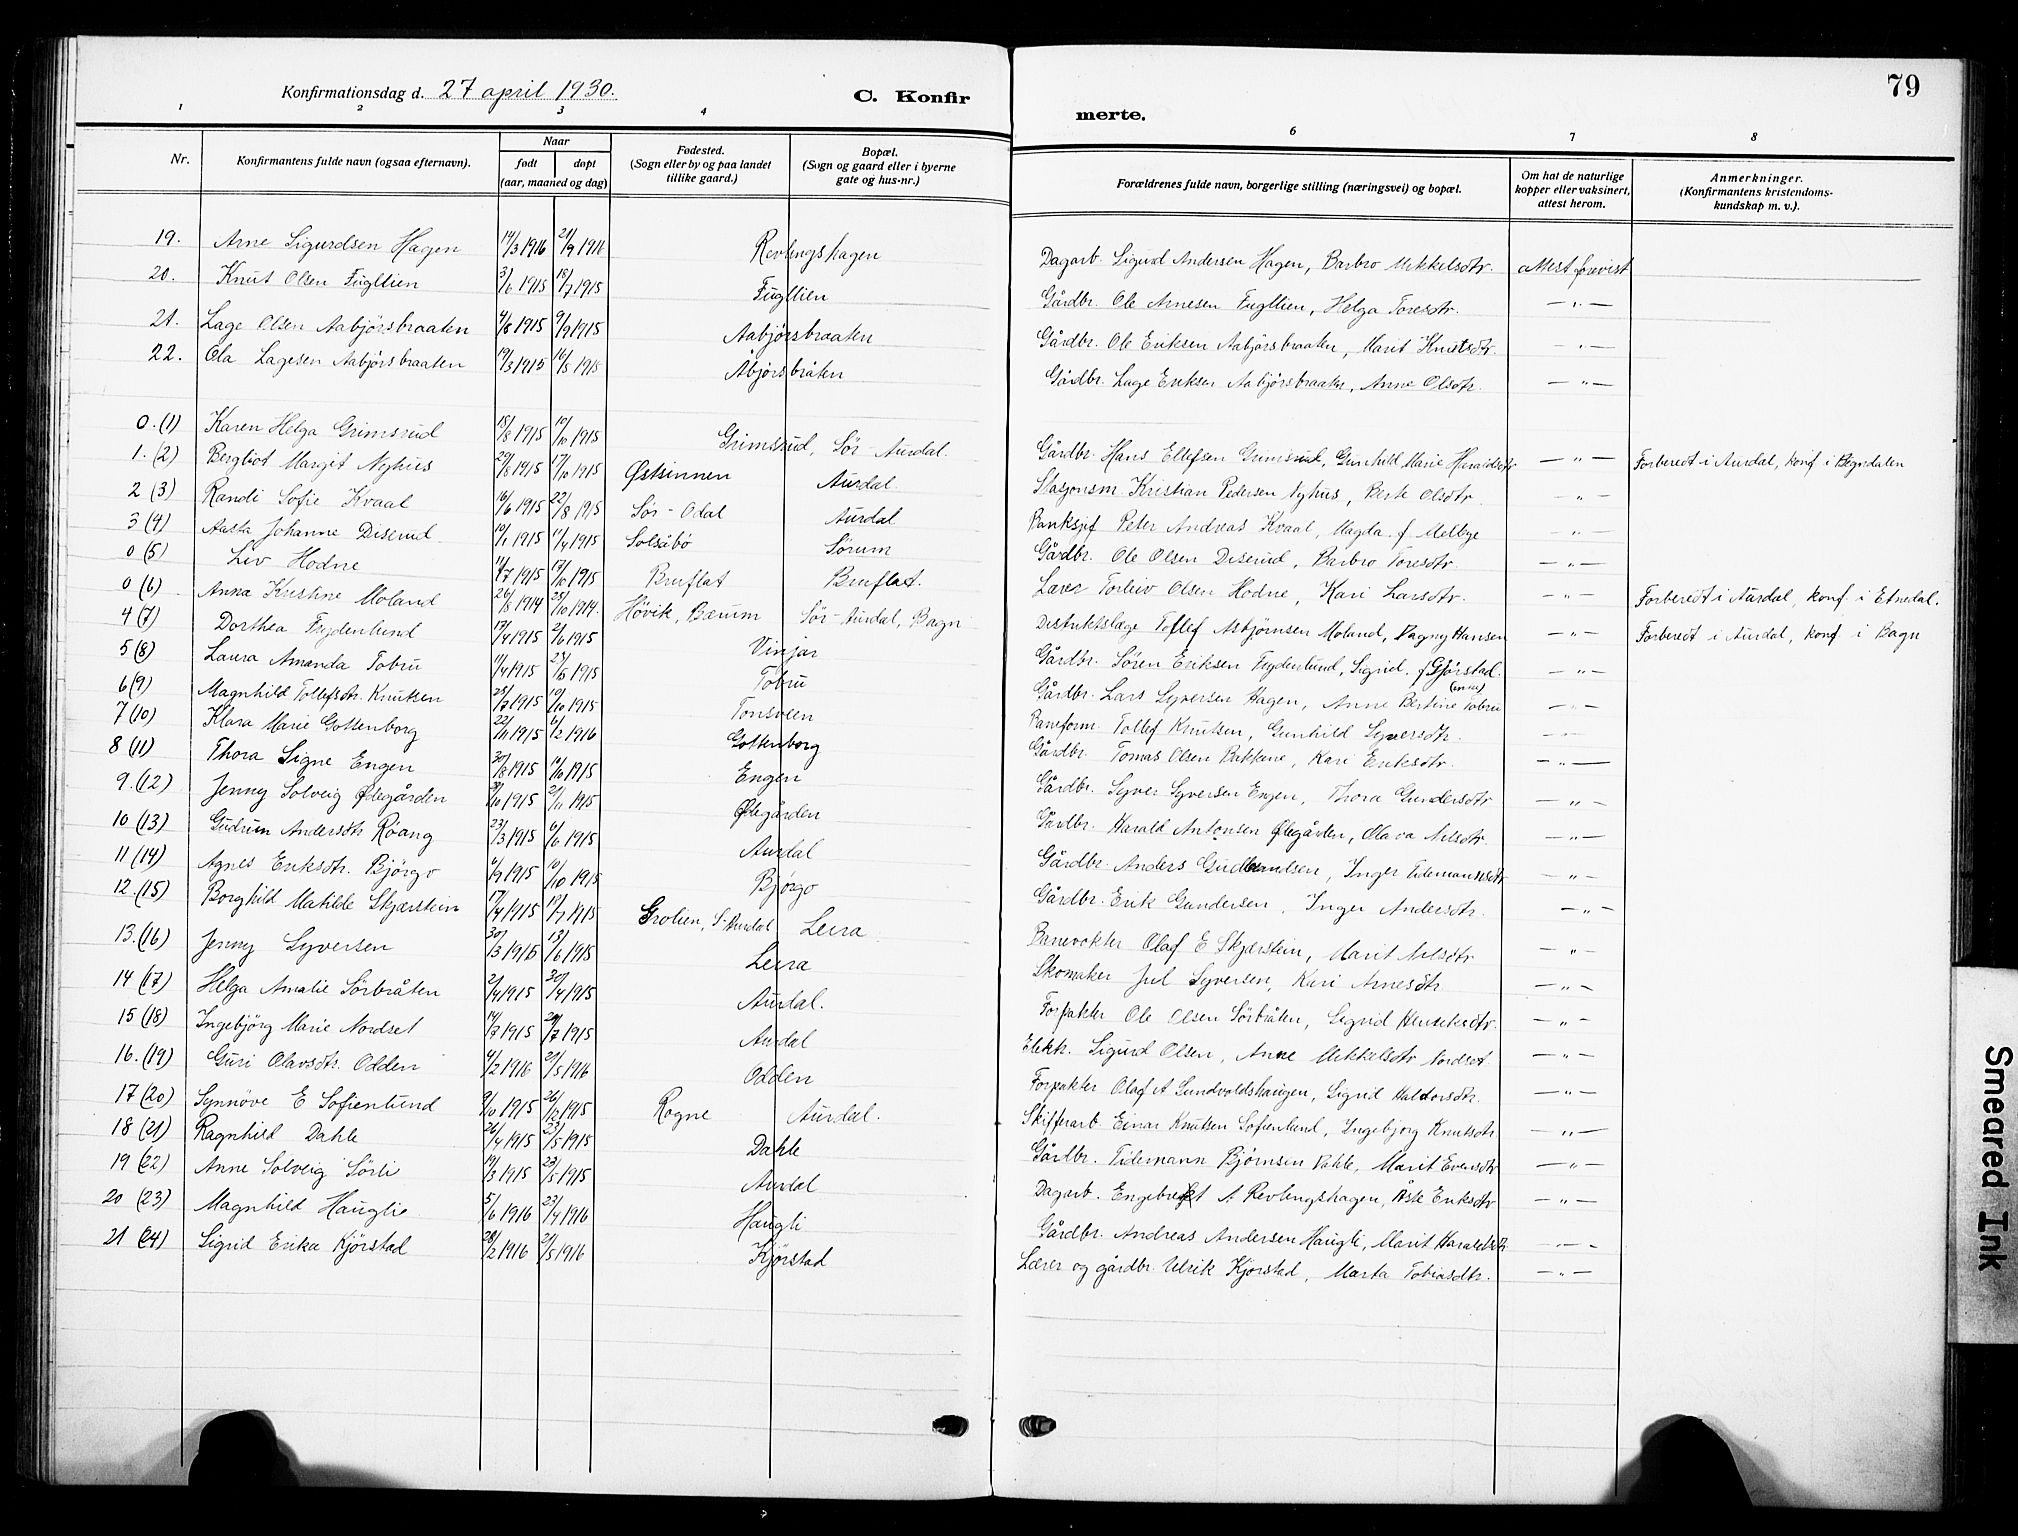 79
Konfirmationsdag d. 27 april 1930.
C. Konfir
merte.
1 2 3 4 6 7 8
Nr. Konfirmantens fulde navn (ogsaa efternavn). Naar født døpt (aar, maaned og dag) Fødested. (Sogn eller by og paa landet tillike gaard.) Bopæl. (Sogn og gaard eller i byerne gate og hus-nr.) Forældrenes fulde navn, borgerlige stilling (næringsvei) og bopæl. Om hat de naturlige kopper eller vaksinert, attest herom. Anmerkninger. (Konfirmantens kristendoms-kundskap m. v.).
19. Arne Sigurdsen Hagen 14/3 1916 21/9 1916 Revlingshagen Dagarb. Sigurd Andersen Hagen, Barbro Mikkelsdtr. attest forevist
20. Knut Olsen Fugllien 3/6 1915 18/7 1915 Fugllien Gårdbr. Ole Arnesen Fugllien, Helga Toresdtr. — " —
21. Lage Olsen Aabjörsbraaten 4/8 1915 9/9 1915 Aabjörsbraaten Gårdbr. Ole Eriksen Aabjörsbraaten, Marit Knutsdtr. — " —
22. Ola Lagesen Aabjörsbraaten 19/3 1915 16/5 1915 Åbjörsbråten Gårdbr. Lage Eriksen Aabjörsbraaten, Anne Olsdtr. — " —
0. (1) Karen Helga Grimsrud 18/8 1915 19/10 1915 Grimsrud, Sör-Aurdal. Gårdbr. Hans Ellefsen Grimsrud, Gunhild Marie Haraldsdtr — " — Forberedt i Aurdal, konf. i Begndalen
1. (2) Bergliot Margit Nyhus 29/8 1915 17/10 1915 Østsinnen Aurdal. Stasjonsm. Kristian Pedersen Nyhus, Berte Olsdtr. — " —
2 (3) Randi Sofie Kvaal 16/6 1915 22/8 1915 Sör-Odal Aurdal Banksjef Peter Andreas Kvaal, Magda f. Melbye — " —
3 (4) Aasta Johanne Diserud 10/1 1915 11/4 1915 Solsäbö Sörum Gårdbr. Ole Olsen Diserud, Barbro Toresdtr. — " —
0 (5) Liv Hodne 11/7 1915 17/10 1915 Bruflat Bruflat. Lærer Torleiv Olsen Hodne, Kari Larsdtr. — " — Forberedt i Aurdal, konf. i Etnedal.
0 (6) Anna Kristine Moland 26/8 1914 25/10 1914. Hövik, Bærum Sör-Aurdal, Bagn Distriktslæge Tollef Asbjørnsen Moland, Dagny Hansen — " — Forberedt i Aurdal, konf. i Bagn
4 (7) Dorthea Frydenlund 17/4 1915 2/6 1915 Vinjar Gårdbr. Sören Eriksen Frydenlund, Sigrid f. Gjörstad. — " —
5 (8) Laura Amanda Tobru 11/4 1915 1915 Tobru Gårdbr. Lars Syversen Hagen, Anne Bertine Tobru — " —
6 (9) Magnhild Tollefsdtr. Knutsen 1915 19/10 1915 Tonsveen Baneform. Tollef Knutsen, Gunhild Syversdtr. — " —
7 (10) Klara Marie Gottenborg 22/11 1915 6/2 1916 Gottenborg Gårdbr. Tomas Olsen Bakkene, Kari Eriksdtr. — " —
8 (11) Thora Signe Engen 30/8 1915 1915 Engen Gårdbr. Syver Syversen Engen, Thora Gundersdtr — " —
9. (12) Jenny Solveig Ødegården 1915 21/11 1915 Ødegården Gårdbr. Harald Antonsen Ødegården, Olava Nilsdtr. — " —
10 (13) Gudrun Andersdtr. Röang 23/3 1915 6/6 1915 Aurdal Gårdbr. Anders Gudbrandsen, Inger Tidemannsdtr — " —
11 (14) Agnes Eriksdtr. Björgo 4/9 1915 10/10 1915 Björgo Gårdbr. Erik Gundersen, Inger Andersdtr. — " —
12. (15) Borghild Matilde Skjærstein 17/4 1915 1915 Grolien, S-Aurdal Leira Banevokter Olaf E Skjærstein, Marit Nilsdtr — " —
13. (16) Jenny Syversen 30/3 1915 13/6 1915 Leira Skomaker Jul Syversen, Kari Arnesdtr — " —
14 (17) Helga Amalie Sörbråten 2/4 1915 30/4 1915 Aurdal. Forpakter Ole Olsen Sörbråten, Sigrid Henriksdtr. — " —
15 (18) Ingebjörg Marie Nordset 14/7 1915 29/7 1915 Aurdal Elekk. Sigurd Olsen, Anne Mikkelsdtr Nordset — " —
16. (19) Guri Olavsdtr. Odden 4/2 1916 21/5 1916 Odden Forpakter Olaf A Sundvoldshaugen, Sigrid Haldorsdtr. — " —
17 (20) Synnöve E Sofienlund 9/10 1915 26/12 1915 Rogne Aurdal. Skifferarb. Einar Knutsen Sofienlund, Ingebjörg Knutsdtr — " —
18 (21) Ragnhild Dahle 26/4 1915 23/5 1915 Dahle Gårdbr. Tidemann Björnsen Dahle, Marit Evensdtr — " —
19 (22) Anne Solveig Sörli 19/3 1915 23/5 1915 Aurdal Dagarb. Engebret A. Revlingshagen, Åste Eriksdtr — " —
20 (23) Magnhild Hauglie 5/6 1916 23/4 1916 Haugli Gårdbr. Andreas Andersen Haugli, Marit Haraldsdtr — " —
21 (24) Sigrid Erika Kjörstad 28/2 1916 21/5 1916 Kjörstad Lærer og gårdbr. Ulrik Kjörstad, Marta Tobiasdtr. — " —
Smeared Ink